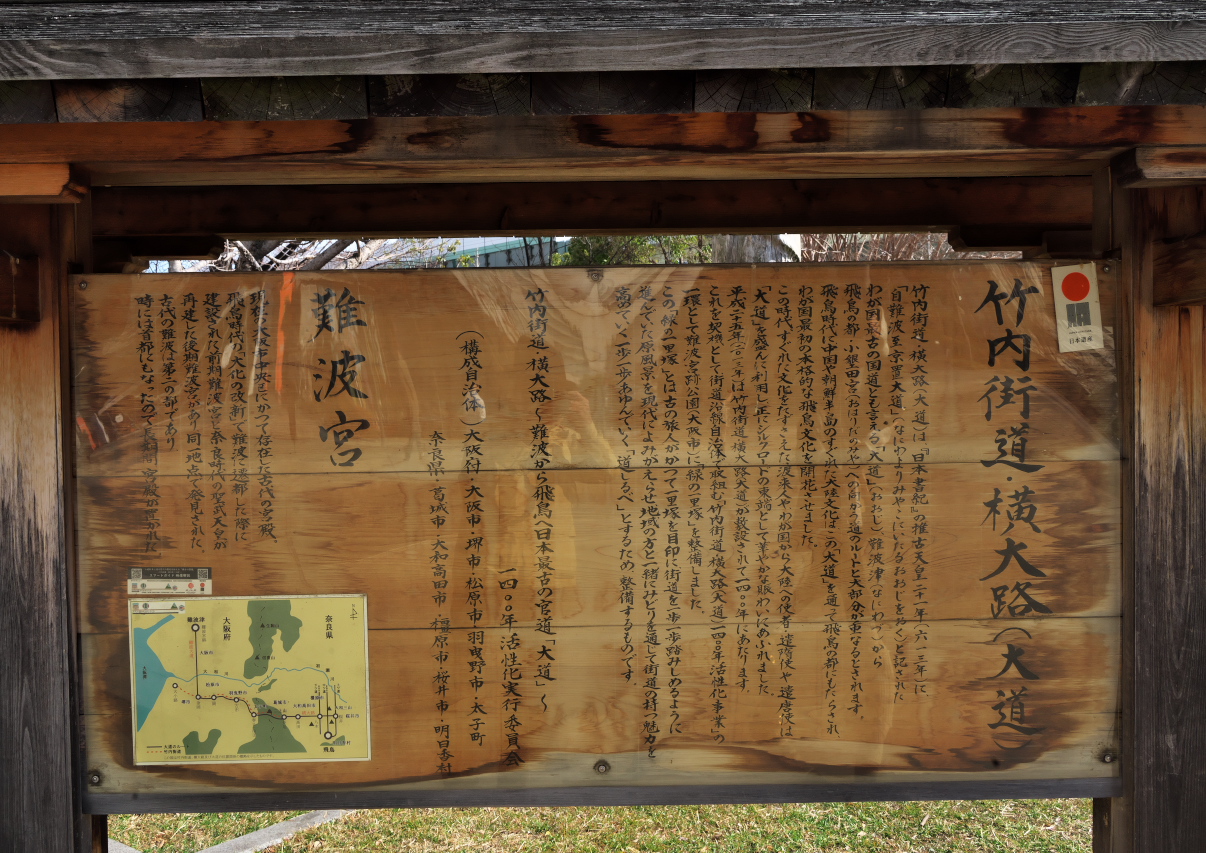 竹内街道・横大路(大道)
竹内街道・横大路(大道)は『日本書紀』の推古天皇二十一年(六一三年)に、
「自難波至京置大道」(なにわよりみやこにいたるおおじをおく)と記された
わが国最古の国道とも言える「大道」(おおじ)難波津(なにわづ)から
飛鳥の都・小墾田宮(おはりだのみや)への向かう道のルートと大部分が重なるとされます。
飛鳥時代に中国や朝鮮半島のすぐれた大陸文化は、この「大道」を通って飛鳥の都にもたらされ
わが国最初の本格的な飛鳥文化を開花させました。
この時代、すぐれた文化をたずさえた渡来人やわが国から大陸への使者・遣隋使や遣唐使は
「大道」を盛んに利用し正にシルクロードの東端として華やかな賑わいにあふれました。
平成二十五年(二〇一三年)は竹内街道・横大路(大道)が敷設されて一四〇〇年にあたります。
これを契機として街道沿線自治体で取組む「竹内街道・横大路(大道)一四〇〇年活性化事業」の
一環として難波宮跡公園(大阪市)に「緑の一里塚」を整備しました。
この「緑の一里塚」とは古の旅人がかつて一里塚を目印に街道を一歩一歩踏みしめるように
進んでいた原風景を現代によみがえらせ地域の方と一緒にみどりを通じて街道の持つ魅力を
高めていく一歩一歩あゆんでいく「道しるべ」とするため、整備するものです。
竹内街道・横大路~難波から飛鳥へ日本最古の官道「大道」~
一四〇〇年活性化実行委員会
(構成自治体)大阪府・大阪市・堺市・松原市・羽曳野市・太子町
奈良県・葛城市・大和高田市・橿原市・桜井市・明日香村
難波宮
現在の大阪市中央区にかつて存在した古代の宮殿。
飛鳥時代の「大化の改新」で難波に遷都した際に
建設された前期難波宮と奈良時代の聖武天皇が
再建した後期難波宮があり同一地点で発見された。
古代の難波は第二の都であり
時には首都にもなったので長期間、宮殿が置かれた。
日本遺産
難波津
大阪府
奈良県
飛鳥